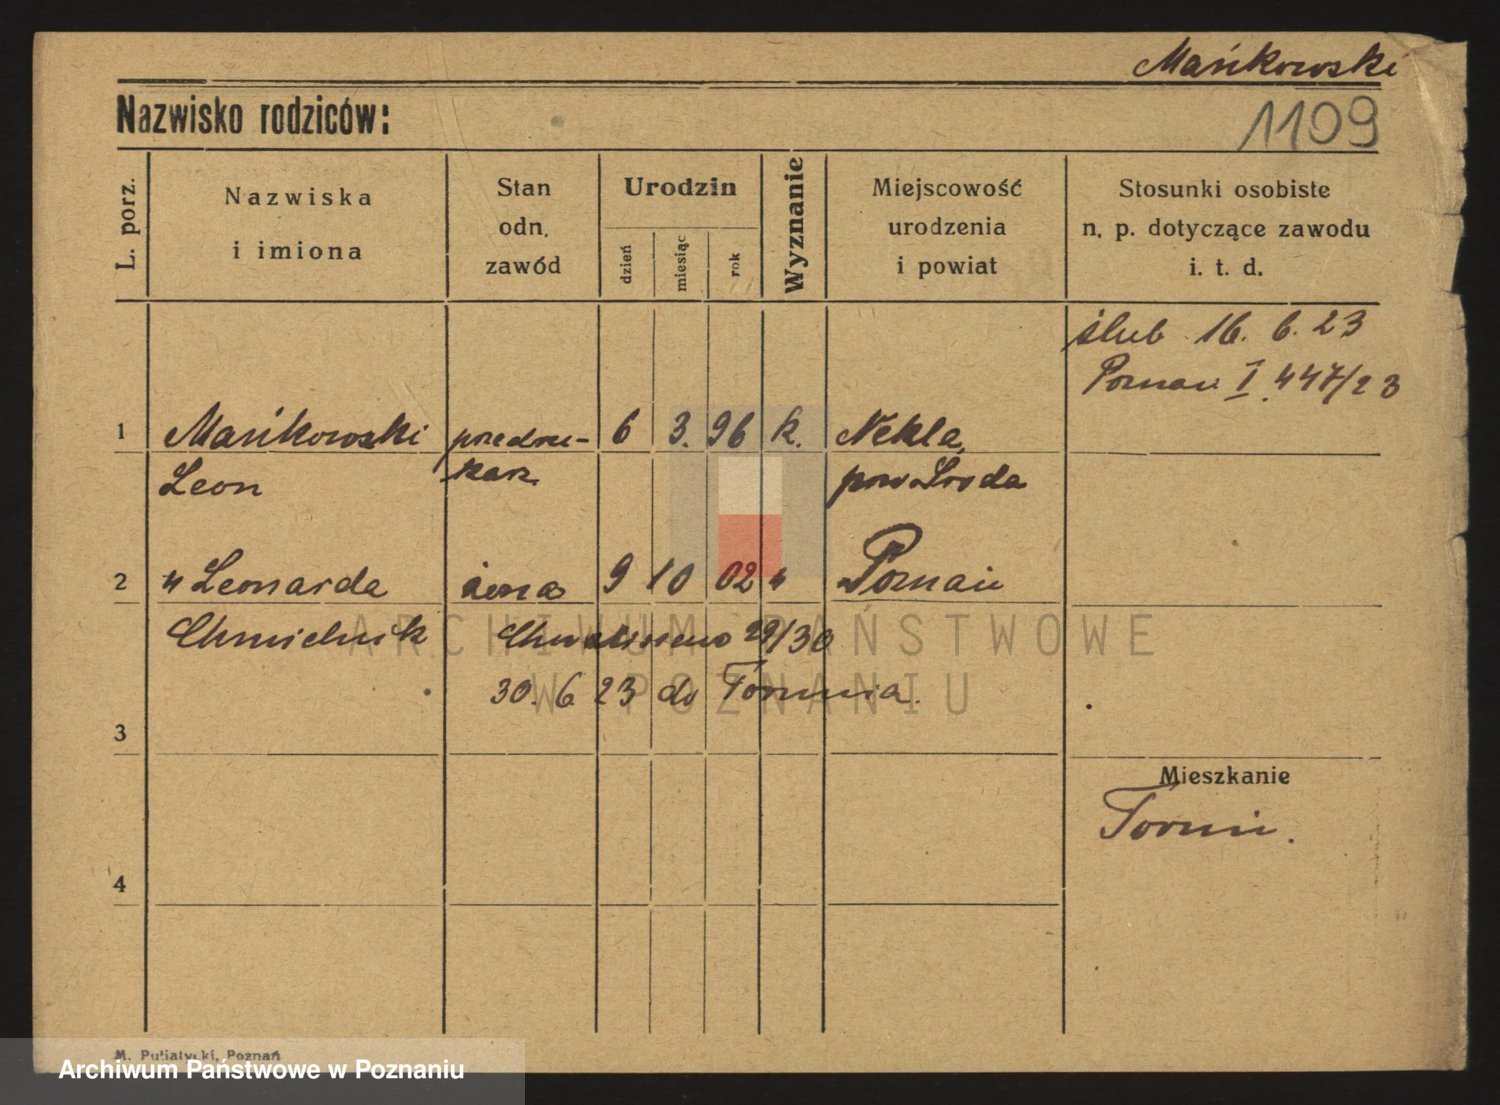 Mańkowski
Nazwisko rodziców:
1109
L. porz.
Nazwiska
i imiona
Stan
odn.
zawód
Urodzin
dzień
miesiąc
rok
Wyznanie
Miejscowość
urodzenia
i powiat
Stosunki osobiste
n. p. dotyczące zawodu
i. t. d.
ślub 16. 6. 23
Poznań I. 447/23
1 Mańkowski 6 3. 96 k. Nekla
Leon pow Środa
2 " Leonarda żona 9 10 02 " Poznań
Chmielnik 29/30
30. 6 23 do Torunia.
3
Mieszkanie
Toruń.
4
ARCHIWUM PAŃSTWOWE
W POZNANIU
M. Putiatycki, Poznań
Archiwum Państwowe w Poznaniu